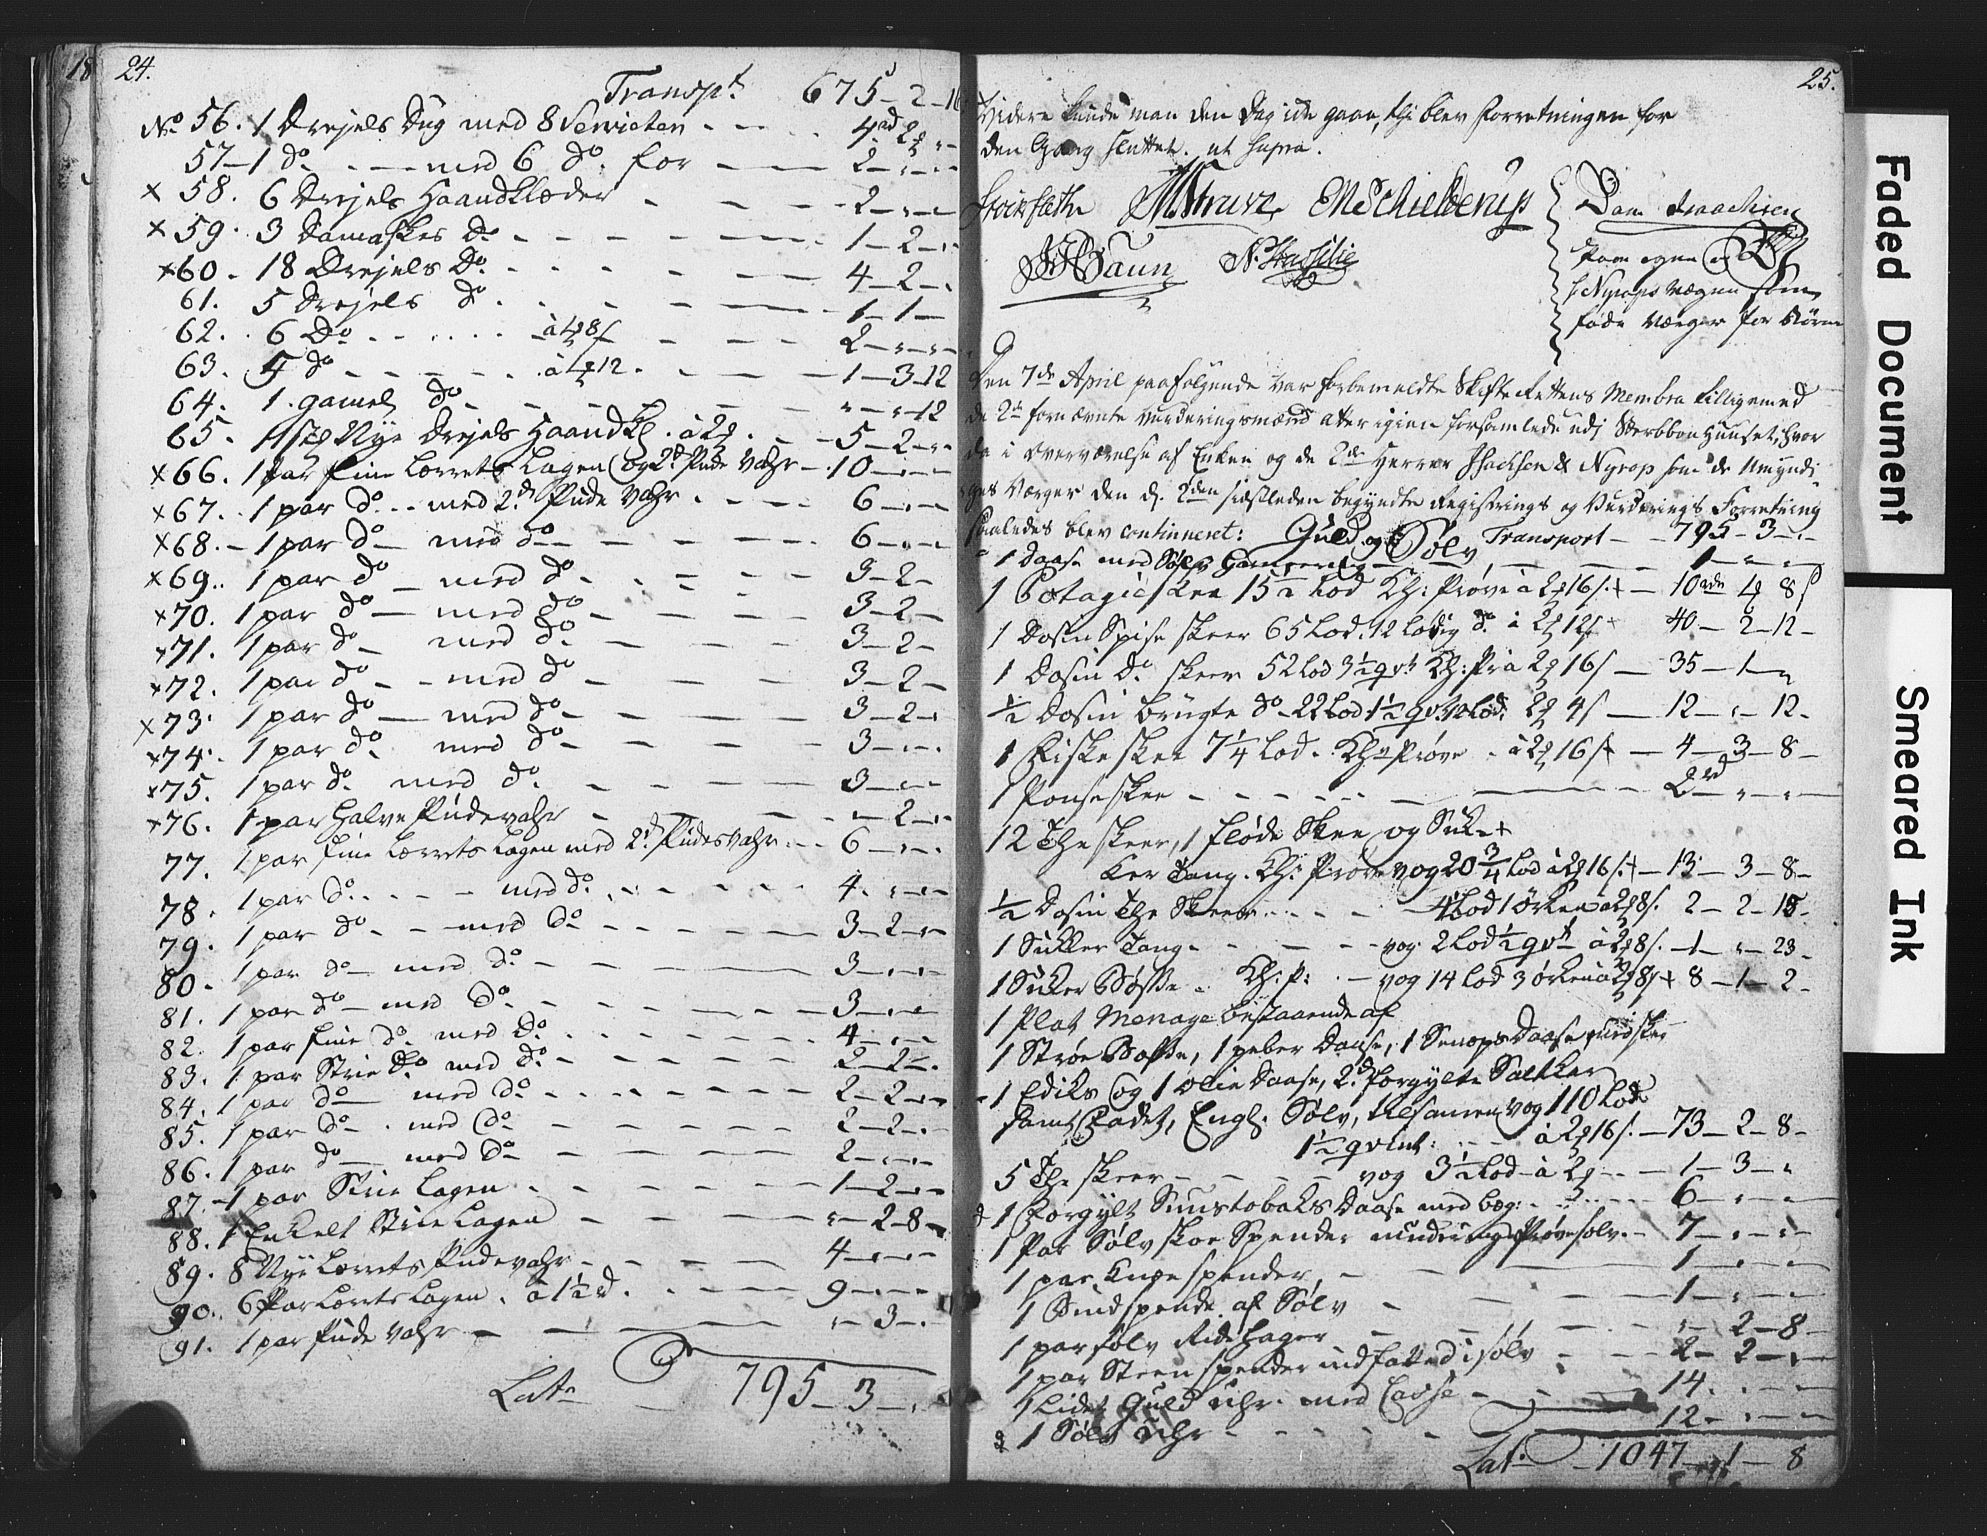 18
24.
Transpt. 675-2-16
No. 56. 1 Drejels Dug med 8 Servieter - - - 4rd 2
57 - 1 do. - - - med 6 do. for - - 2 - " - "
x 58. 6 Drejels Haandklæder - - - 2 - " - "
x 59. 3 Damaskes do - - - - 1 - 2 - "
x 60. 18 Drejels do. - - - - 4 - 2 - "
61. 5 Drejels do. - - - - 1 - 1 -
62. 6 do - - - - à 8 s - - 2 - " - "
63. 5 do - - - - à 12. - - 1 - 3 - 12
64. 1 gamel do - - - - " - " - 12
65. Nye Drejels Haandkl. à 2 - - 5 - 2 - "
x 66. 1 Par fine Lærrets Lagen og 2de Pude Vahr - 10 - " - "
x 67. 1 par do. - - med 2de Pude Vahr - - - 6 - " - "
x 68. - 1 par do - med do - - - 6 - " - "
x 69. 1 par do - med do - - - 3 - 2 -
x 70. 1 par do - med do - - - 3 - 2 -
x 71. 1 par do - med do - - - 3 - 2 -
x 72. 1 par do - - med do - - - 3 - 2 -
x 73. 1 par do - med do - - - 3 - 2 - "
x 74. 1 par do. med do - - - 3 - " - "
x 75. 1 par do. med do. - - - 3 - " - "
x 76. 1 par Halve Pudevahr - - - " - 2 - "
77. 1 par fine Lærrets Lagen med 2de Pudesvahr - - 6 - " - "
78. 1 par do. - - - med do. - - - 4. " - "
79. 1 par do. - - med do - - - 3 - 2 - "
80. 1 par do - med do. - - - 3 - " - "
81. 1 par do - med do. - - - 3 - " - "
82. 1 par fine do. med do. - - - 4 - " - "
83. 1 par Strie do. med do. - - - 2 - 2 - "
84. 1 par do - med do. - - - 2 - 2 - "
85. 1 par do - . med do. - - - 2 - 2 - "
86. 1 par do - med do - - - 2 - " - "
87. - 1 par Strie Lagen - - - 1 - 2 - "
88. 1 Enkelt Strie Lagen - - - " - 2 - 8
89. 8 Nye Lærrets Pudevahr - - - 4 - " - "
90. 6 Par Lærrets Lagen. à 1½ d. - - - 9 - " - "
91. 1 par Pude Vahr - - - " - 3 - "
Lats - 795 - 3 - "
25.
Videre kunde man den Dag icke gaae, thi blev Forretningen for
den Gang sluttet. ut supra.
Struve EMSchielderup
Paa egen og
Nyrops Vægne som
fødte Værger for Børne
Den 7de April paafølgende var forbemeldte Skifte Rettens Membra tilligemed
de 2de fornævnte Vurderingsmænd atter igien forsamlede udj Sterbboe Huuset, hvor
da i Overværelse af Enken og de 2de Herrer Isachsen & Nyrop som de Umyndi-
ges Værger den d. 2den sidstleden begyndte Registrings og Vurderings Forretning
saaledes blev continueret: Guld og Sølv Transport - - 795 - 3 - "
1 Daase med Sølv - - - 1 - " - "
1 Potagie skee 15½ Lod Kh: Prøve à 2 16 s. + - 10rd 4 8 s
1 Dosin Spise skeer 65 Lod. 12 lødig do. à 2 12 s + 40 - 2 - 12 -
1 Dosin do skeer 52 Lod 3½ qvt Kh: Pr à 2 16 s - 35 - 1 - "
½ Dosin brugte do - 22 Lod 1½ qvt 12 Lød: 2 4 s - 12 - " - 12 -
1 Fiske skee 7¼ Lod. Kh Prøve - à 2 16 s + - 4 - 3 - 8 -
1 Ponseskee - - - - 2rd - " - "
12 The skeer, 1 Fløde Skee og Suk- +
ker Tang. Kh: Prøve vog 20¾ Lod à 2 16 s. + - 13 - 3 - 8 -
½ Dosin The Skeer - - - 4 Lod 1 ørken à 2 8 s. 2 - 2 - 15 -
1 Sukker Tang - - - vog 2 Lod ½ qvt à 2 8 s. - 1 - " - 23 -
1 Sukker Bøsse. Kh: P: - vog 14 Lod 3 ørken à 2 8 s + 8 - 1 - 2 -
1 Plat Menage bestaaende af
1 Strøe Bøsse, 1 peber Daase, 1 Senops Daase med skee
1 Ediks og 1 Olie Daase, 2de forgylte Saltkar
samt Fadet, Engl. Sølv, tilsamen vog 110 Lod
1½ qvint: - - - à 2 16 s. - 73 - 2 - 8 -
5 The skeer - - - vog 3½ Lod à 2 - - - 1 - 3 - "
1 Forgylt Snustobaks Daase med bæg: - - - 6 - " - "
1 Par Sølv skoe Spender under Prøvesølv. - 7 - " - "
1 par Knæ spender, - - - 1 - " - "
1 Sindspende af Sølv - - - 1 - " - "
1 par sølv Ride Hager - - - " - 2 - 8 -
1 par Steen spender indfatted i sølv - - - 2 - 2 - "
1 Lidet Guld uhr. med Casse - - - 14. " - "
1 Sølv uhr - - - 12 - " - "
Lat. - 1047 - 1 - 8
Faded Document
Smeared Ink